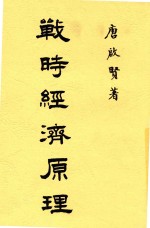 唐啟賢著
戰時經濟原理